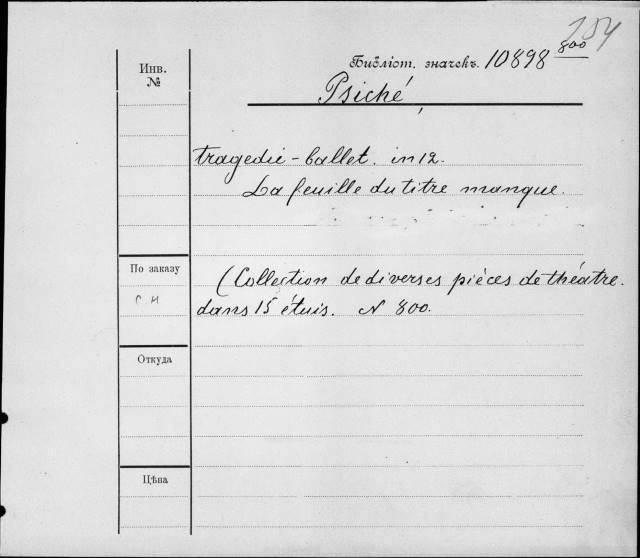 154
Библіот. значекъ. 10898 800
Инв.
№
Psiché,
tragedie-ballet. in 12.
La feuille du titre manque.
По заказу
(Collection de diverses pièces de théatre.
dans 15 étuis. N 800.
Откуда
Цѣна